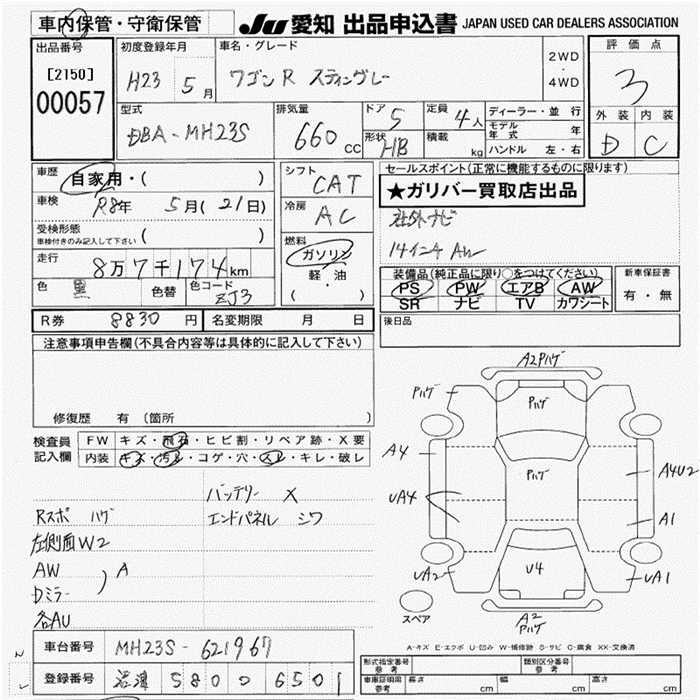 車内保管・守衛保管
JU 愛知 出品申込書 JAPAN USED CAR DEALERS ASSOCIATION
出品番号
[2150]
00057
初度登録年月
H23 5月
車名・グレード
ワゴンR スティングレー
2WD
・
4WD
評価点
3
外装 内装
D C
型式
DBA-MH23S
排気量
660 cc
ドア 5
形状 HB
定員 4人
積載 kg
ディーラー・並行
モデル年式 年
ハンドル 左・右
車歴
自家用・( )
車検 R8年 5月(21日)
受検形態
車検付きのみ記入して下さい ( )
走行 8万7千174km
色 黒 色替 色コード ZJ3
シフト
CAT
冷房
AC
燃料
ガソリン
軽・油
( )
セールスポイント(正常に機能するものに限ります)
★ガリバー買取店出品
社外ナビ
14インチAW
装備品(純正品に限り○をつけてください)
PS PW エアB AW
SR ナビ TV カワシート
新車保証書
有・無
R券 8830円 名変期限 月 日
後日品
注意事項申告欄(不具合内容等は具体的に記入して下さい)
修復歴 有(箇所 )
検査員記入欄
FW キズ・飛石・ヒビ割・リペア跡・X要
内装 キズ・汚レ・コゲ・穴・スレ・キレ・破レ
バッテリー X
Rスポ ハゲ エンドパネル シワ
左側面W2
AW
Dミラー ) A
各AU
A2Pハゲ
Pハゲ
Pハゲ
A4
Pハゲ
A4U2
UA4
A1
UA2
U4
UA1
スペア
A2
Pハゲ
車台番号 MH23S-621967
登録番号 沼津 580 0 6501
A-キズ E-エクボ U-凹み W-補修跡 S-サビ C-腐食 XX-交換済
型式指定番号 参考
類別区分番号 参考
車庫証明用 参考 長さ cm 幅 cm 高さ cm